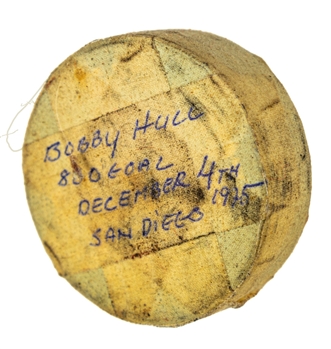 BOBBY HULL
800 GOAL
DECEMBER 4TH
SAN DIEGO 1975